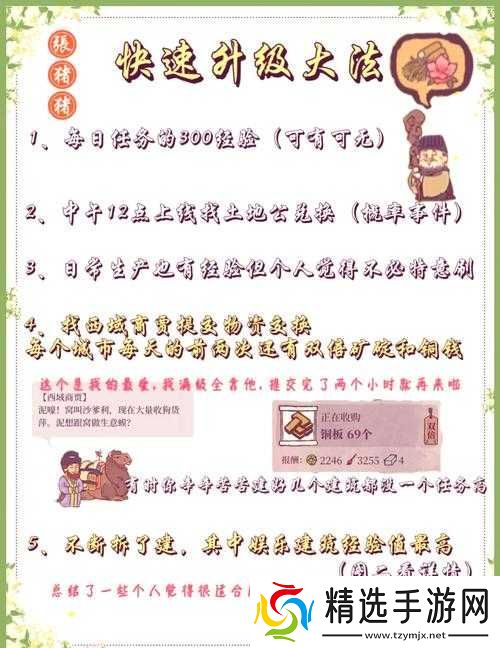 張猪猪
快速升级大法
1、每日任务的300经验（可有可无）
2、中午12点上线找土地公兑换（概率事件）
3、日常生产也有经验但个人觉得不必特意刷
4、找西域商贾提交物资交换
每个城市每天的前两次还有双倍矿碇和铜钱
这个是我的最爱，我满级全靠他，提交完了两个小时就再来啦
【西域商贾】
泥嚎！窝叫沙爹利，现在大量收购货
萍。泥想跟窝做生意蟆？
正在收购
铜板 69个
双倍
报酬： 2246 3255 4
有时你辛辛苦苦建好几个建筑都没一个任务高
5、不断拆了建，其中娱乐建筑经验值最高
（图二看详情）
总结了一些个人觉得很适合
精选手游网
www.tzymjx.net